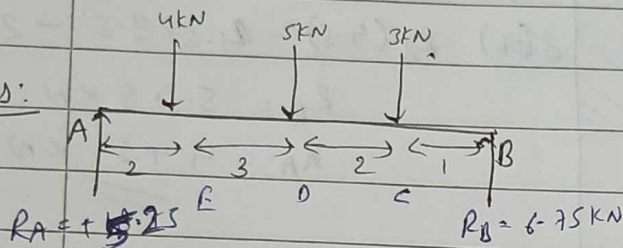 4KN 5KN 3KN
s:
A B
2 3 2 1
E D C
RA = + 5.25 RB = 6.75 KN